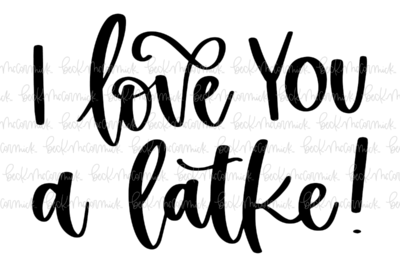 I love You
a latke!